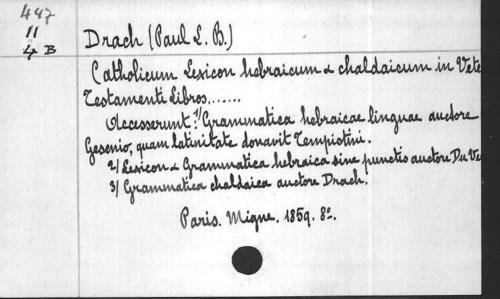 447
11
4 B
Drach (Paul L. B.)
Catholicum Lexicon hebraicum & chaldaicum in Vete
Testamenti Libros.......
Accesserunt 1/ Grammatica hebraicae linguae auctore
Gesenio, quam latinitate donavit Tempistini.
2/ Lexicon & Grammatica hebraica sine punctis auctore Du Ve
3/ Grammatica chaldaica auctore Drach.
Paris. Migne. 1859. 8º.